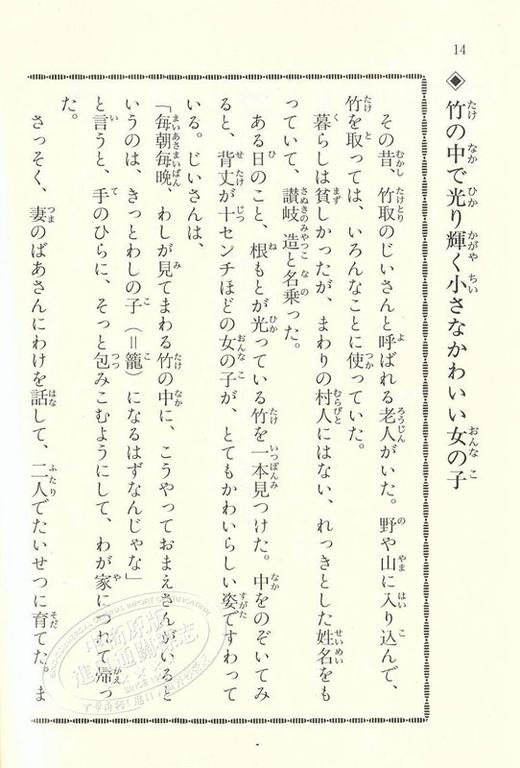 14
◈竹の中で光り輝く小さなかわいい女の子
その昔、竹取のじいさんと呼ばれる老人がいた。野や山に入り込んで、
竹を取っては、いろんなことに使っていた。
暮らしは貧しかったが、まわりの村人にはない、れっきとした姓名をも
っていて、讃岐造と名乗った。
ある日のこと、根もとが光っている竹を一本見つけた。中をのぞいてみ
ると、背丈が十センチほどの女の子が、とてもかわいらしい姿ですわって
いる。じいさんは、
「毎朝毎晩、わしが見てまわる竹の中に、こうやっておまえさんがいると
いうのは、きっとわしの子(=籠)になるはずなんじゃな」
と言うと、手のひらに、そっと包みこむようにして、わが家につれて帰っ
た。
さっそく、妻のばあさんにわけを話して、二人でたいせつに育てた。ま